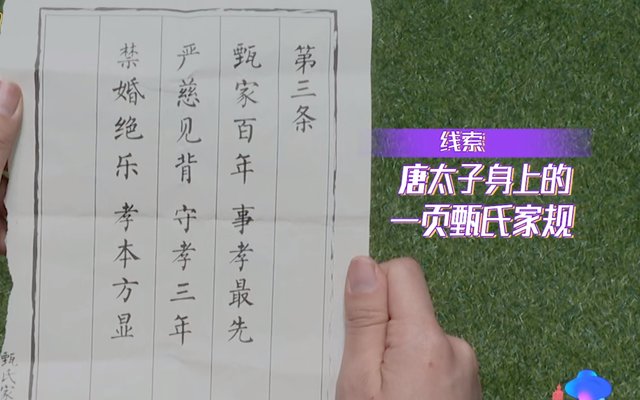 第三条
甄家百年 事孝最先
严慈见背 守孝三年
禁婚绝乐 孝本方显
甄氏家
线索
唐太子身上的
一页甄氏家规